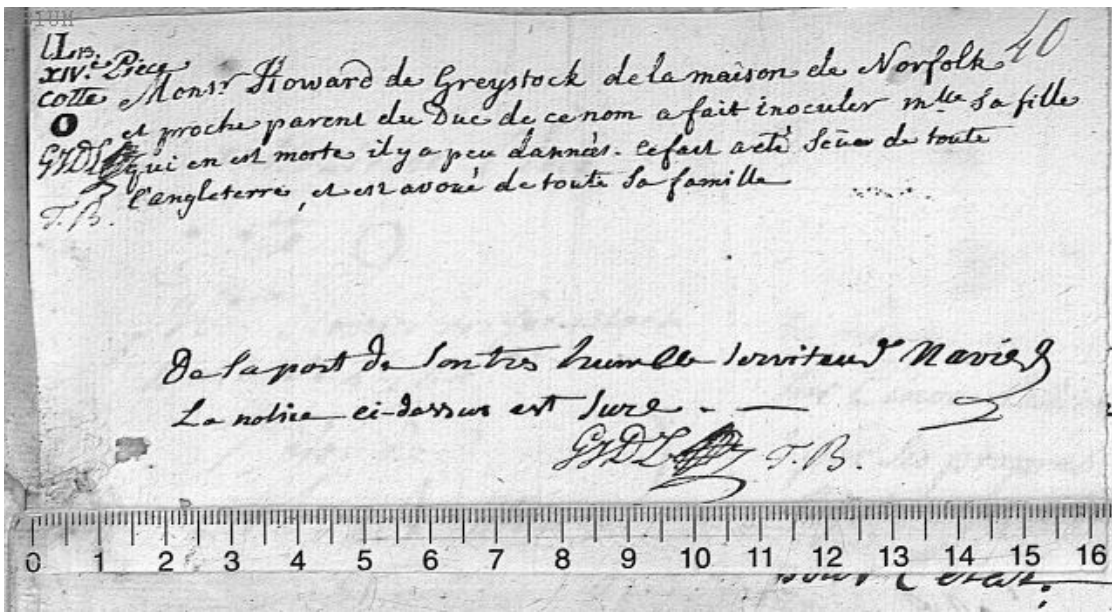 40
LL.B.
XIV.e Piece
cotte
O
GJDL
T.B.
Monsr Howard de Greystock de la maison de Norfolk
et proche parent du Duc de ce nom a fait inoculer mlle sa fille
qui en est morte il y a peu dannés. ce fait a eté sçeu de toute
l'angleterre, et est avoué de toute sa famille
De la part de son tres humble serviteur Navier
La notice ci-dessus est sure. —
GJDL T.B.
0 1 2 3 4 5 6 7 8 9 10 11 12 13 14 15 16